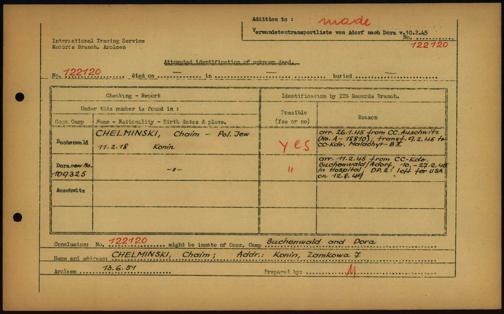 Addition to :
made
Verwundetentransportliste von Adorf nach Dora v.10.2.45
No. 122120
International Tracing Service
Records Branch, Arolsen
Attempted identification of unknown dead.
No. 122120 died on — in — buried —
Checking - Report
Identification by ITS Records Branch.
Under this number is found in :
Possible (yes or no)
Reason
Conc. Camp
Name - Nationality - Birth dates & place.
Buchenwald
CHELMINSKI, Chaim - Pol. Jew
11.2.18 Konin
YES
arr. 26.1.45 from CC. Auschwitz
(No. A - 18810); transf. 9.2.45 to
CC-Kdo. Malachyt - B II.
Dora new No.
109325
- " -
"
arr. 11.2.45 from CC-Kdo.
Buchenwald/Adorf, -10.-27.2.45
in Hospital DP.2: left for USA
on 12.8.49
Auschwitz
Conclusion: No. 122120 might be inmate of Conc. Camp Buchenwald and Dora
Name and address: CHELMINSKI, Chaim; Addr.: Konin, Zamkowa 7
Arolsen 13.6.51 Prepared by: